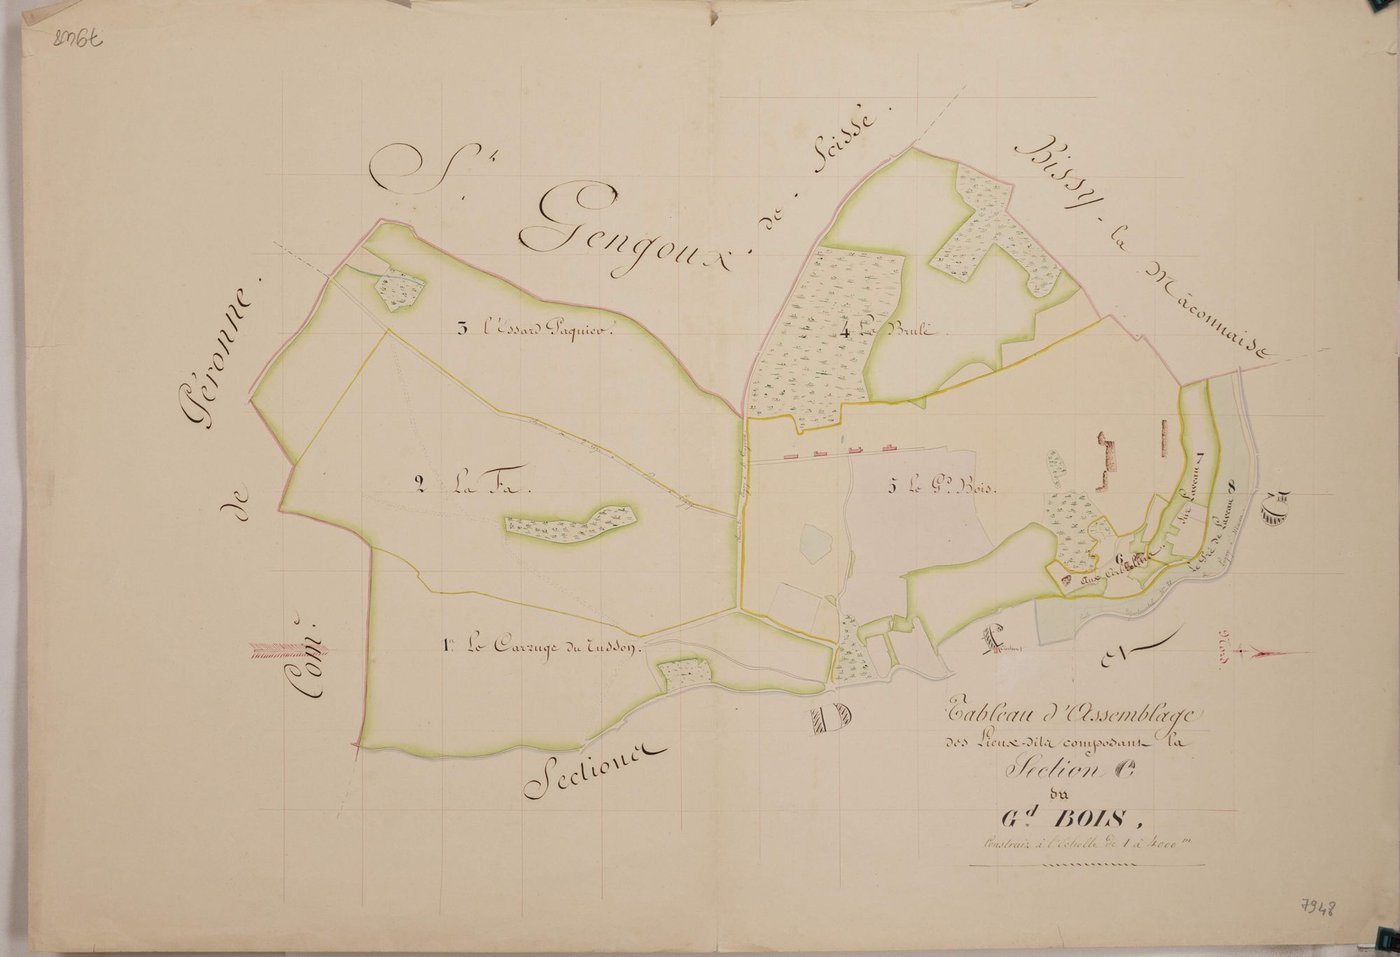 7948
St Gengoux de Scissé.
Bissy-la Mâconnaise
Com. de Péronne.
3 l'Essard Paquier.
4 Le Brulé.
2 La Fa.
5 Le Gd Bois.
6 aux
7 Sur Laveau
8 Le Pré de Laveau
1er Le Carruge du Tusson.
G
F
et
D
Sections
Nord.
Tableau d'Assemblage
des Lieux-dits composant la
Section C
du
Gd BOIS,
Construit à l'échelle de 1 à 4000m
7948